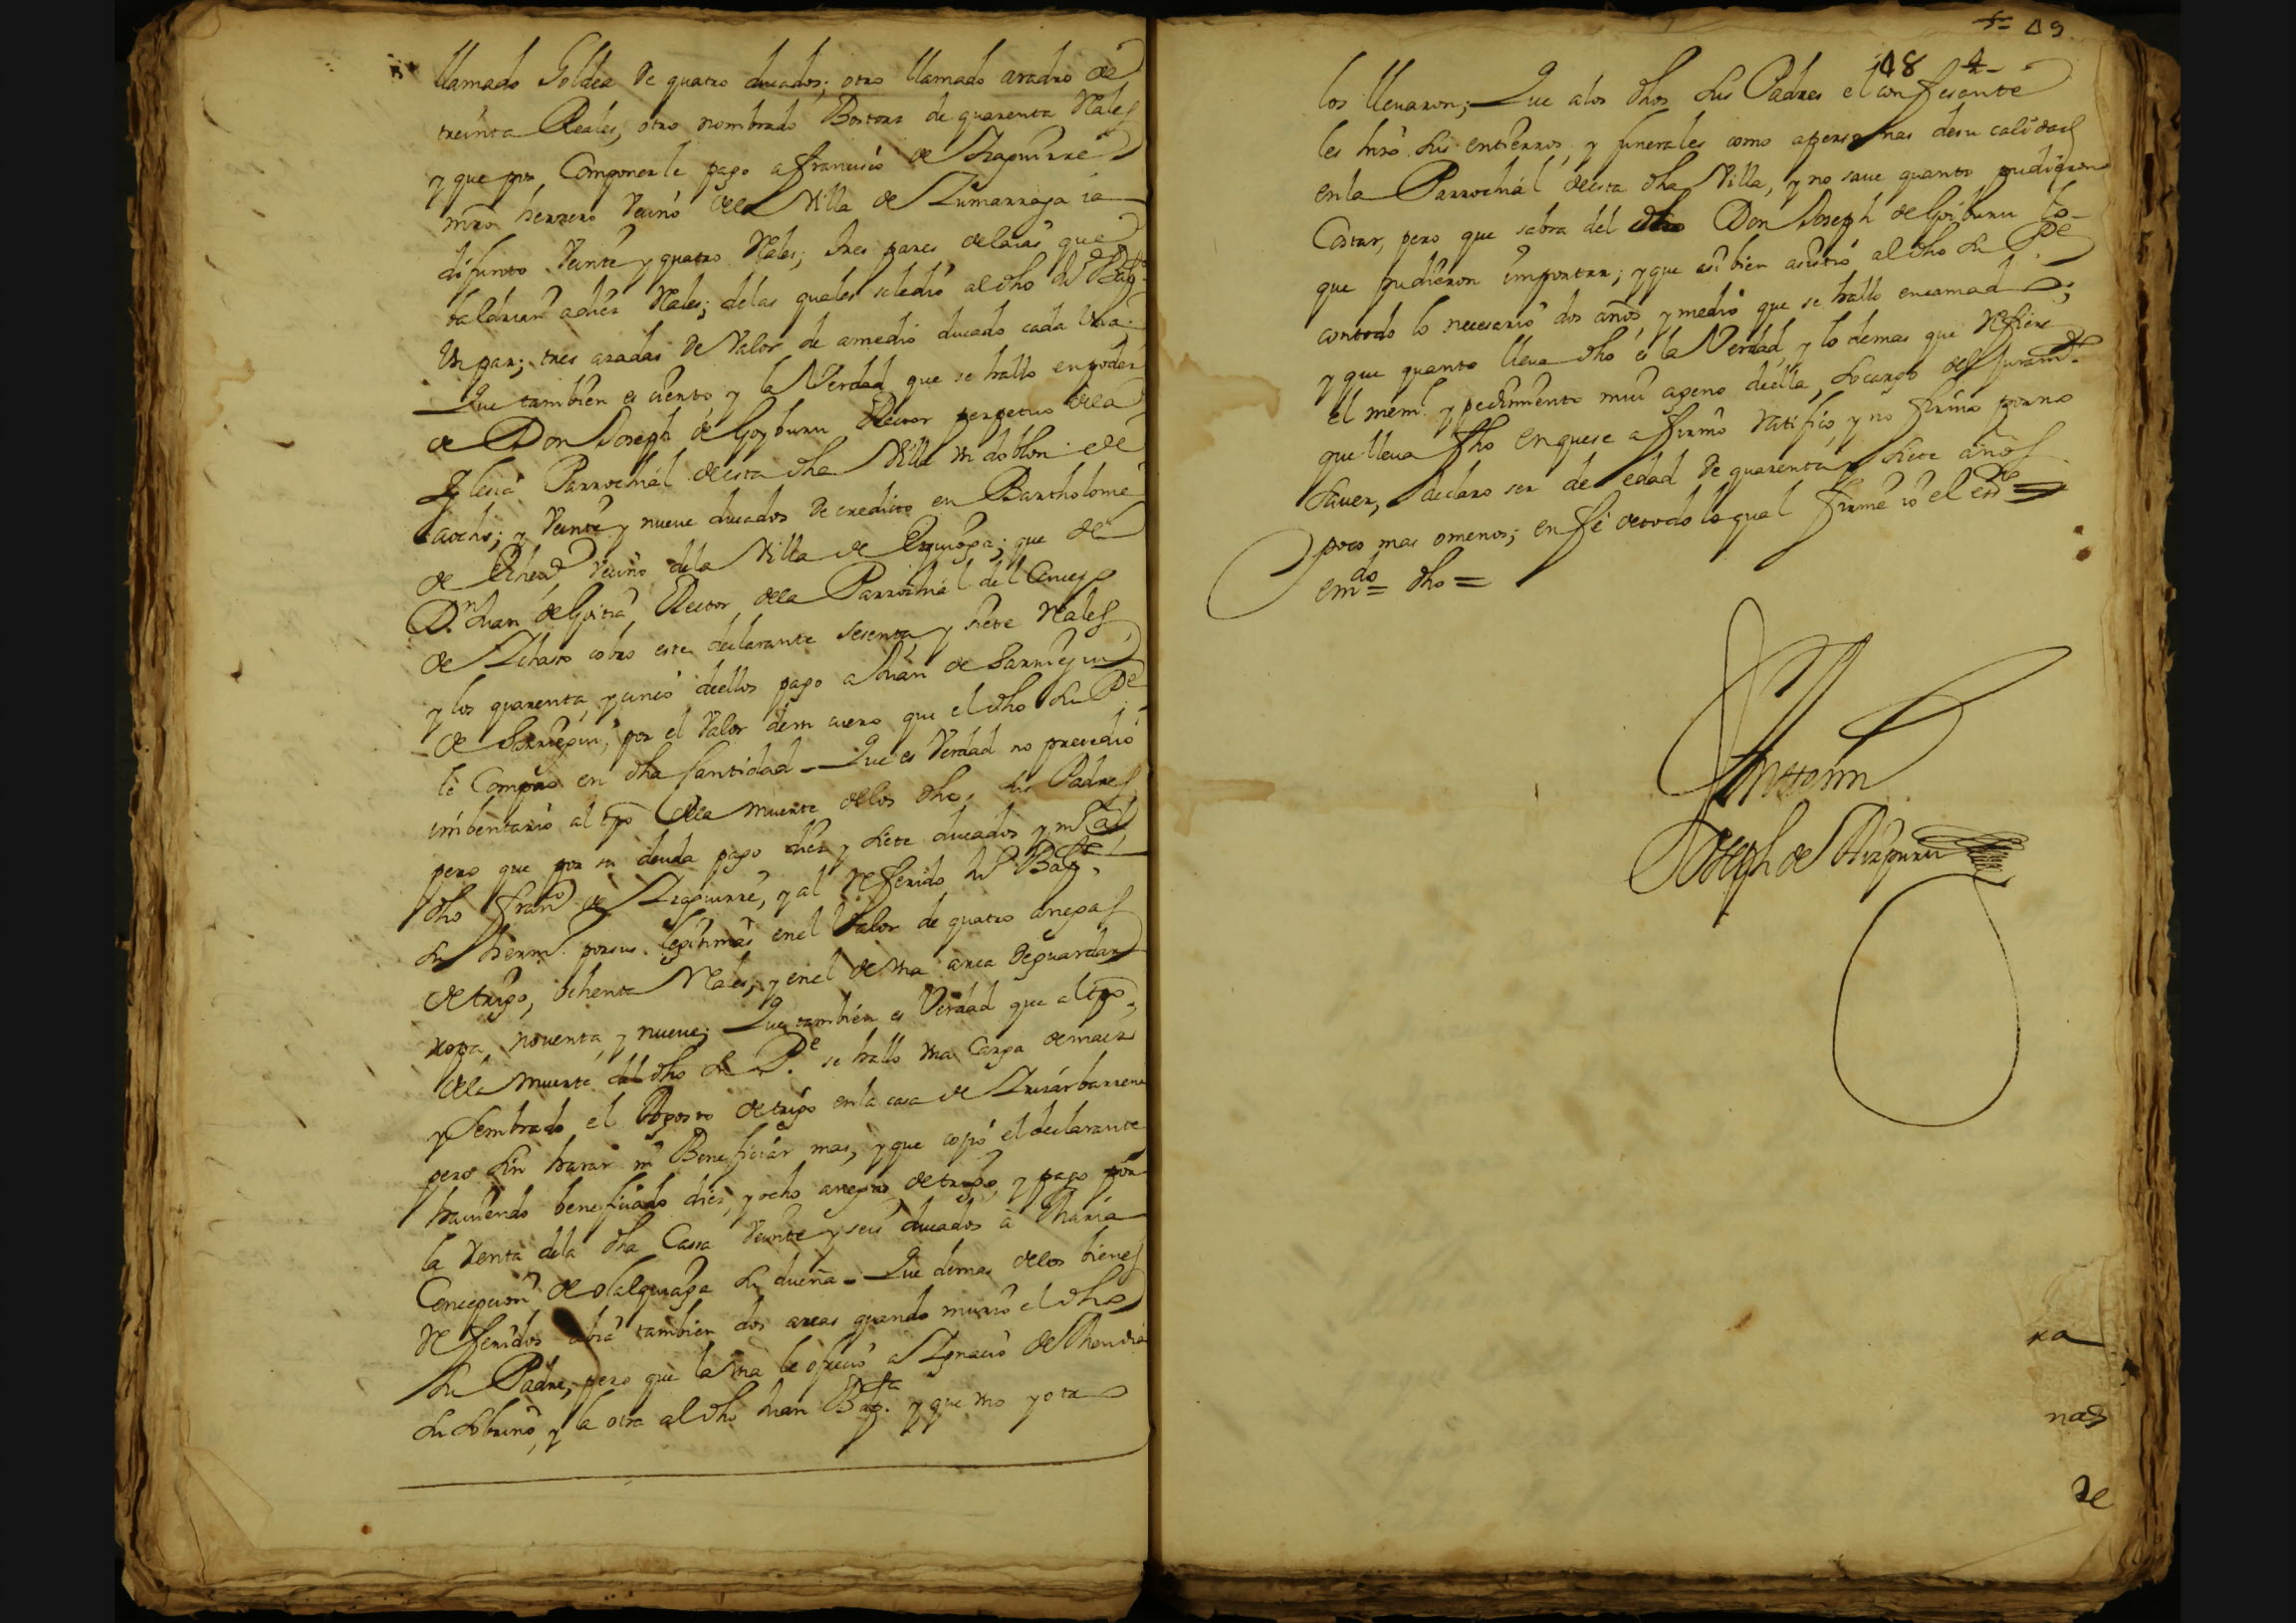 llamado Goldea de quatro ducados; otro llamado aradro de
treinta Reales, otro nombrado Bortorz de quarenta Rales
y que por Componerle pago a francisco de Izaguirre
mro herrero vecino dela Villa de Zumarraga ia
difunto veinte y quatro Rales; tres pares delaias que
baldrian a diez Rales; delas quales seledio al dho Ju Bap.ta
Un par; tres azadas de Valor de amedio ducado cada Una.
Que tambien es cierto y la Verdad que se hallo en poder
de Don Joseph de Goyburu Rector perpetuo dela
Iglesia Parrochial desta dha Villa un doblon de
aocho; y veinte y nueve ducados de credito en Bartholome
de vecino dela Villa de Ezquioga; que de
D.n Juan de Goitia, Rector dela Parrochial del Concejo
de Ichaso cobro este declarante sesenta y siete Rales
y los quarenta y cinco dellos pago a Juan de Sarriegui
de Sarriegui, por el Valor de un cuero que el dho su P.e
le Compro en dha Cantidad - Que es Verdad no precedio
imbentario al tpo dela muerte delos dhos sus Padres
pero que por su deuda pago diez y siete ducados y m.o al
dho Fran.co de Izaguirre, y al Referido Ju Bap.ta
su herm.o porsus legitimas enel Valor de quatro anegas
de trigo, ochenta Rales, y enel de una arca deguardar
ropa, noventa y nueve; Que tambien es Verdad que al tpo
dela muerte del dho su P.e se hallo una Carga demaiz
y Sembrado el Agosto de trigo enla casa de Irizarbarrena
pero sin harar ni Beneficiar mas, y que cojió el declarante
haviendo beneficiado diez y ocho anegas de trigo, y pago por
la Renta dela dha Cassa Veinte y seis ducados a Maria
Concepcion de Olalquiaga su dueña - Que demas delos bienes
Referidos abia tambien dos arcas quando murio el dho
su Padre, pero que la una le ofrecio a Ignacio de
su Sobrino, y la otra al dho Juan Bap.ta y que uno y otro
49
48
los llevaron; Que alos dhos sus Padres el confesente
les hizo sus entierros, y funerales como apersonas desu calidad
enla Parrochial desta dha Villa, y no save quanto pudieron
Costar, pero que sabra del dho Don Joseph de Goiburu lo
que pudieron importar; y que asi bien asistio al dho su P.e
contodo lo necesario dos años y medio que se hallo encamado;
y que quanto lleva dho es la Verdad, y lo demas que Refiere
el mem.l y pedimento mui ageno dela, So cargo del Juram.to
que lleva fho enquese afirmo ratifico, y no firmo porno
saver, declaro ser de edad de quarenta y siete años
poco mas omenos; en fe detodo lo qual firme io el ess.no =
em.do = dho =
Ante mi
Joseph de Aizpuru
ra
nas
de